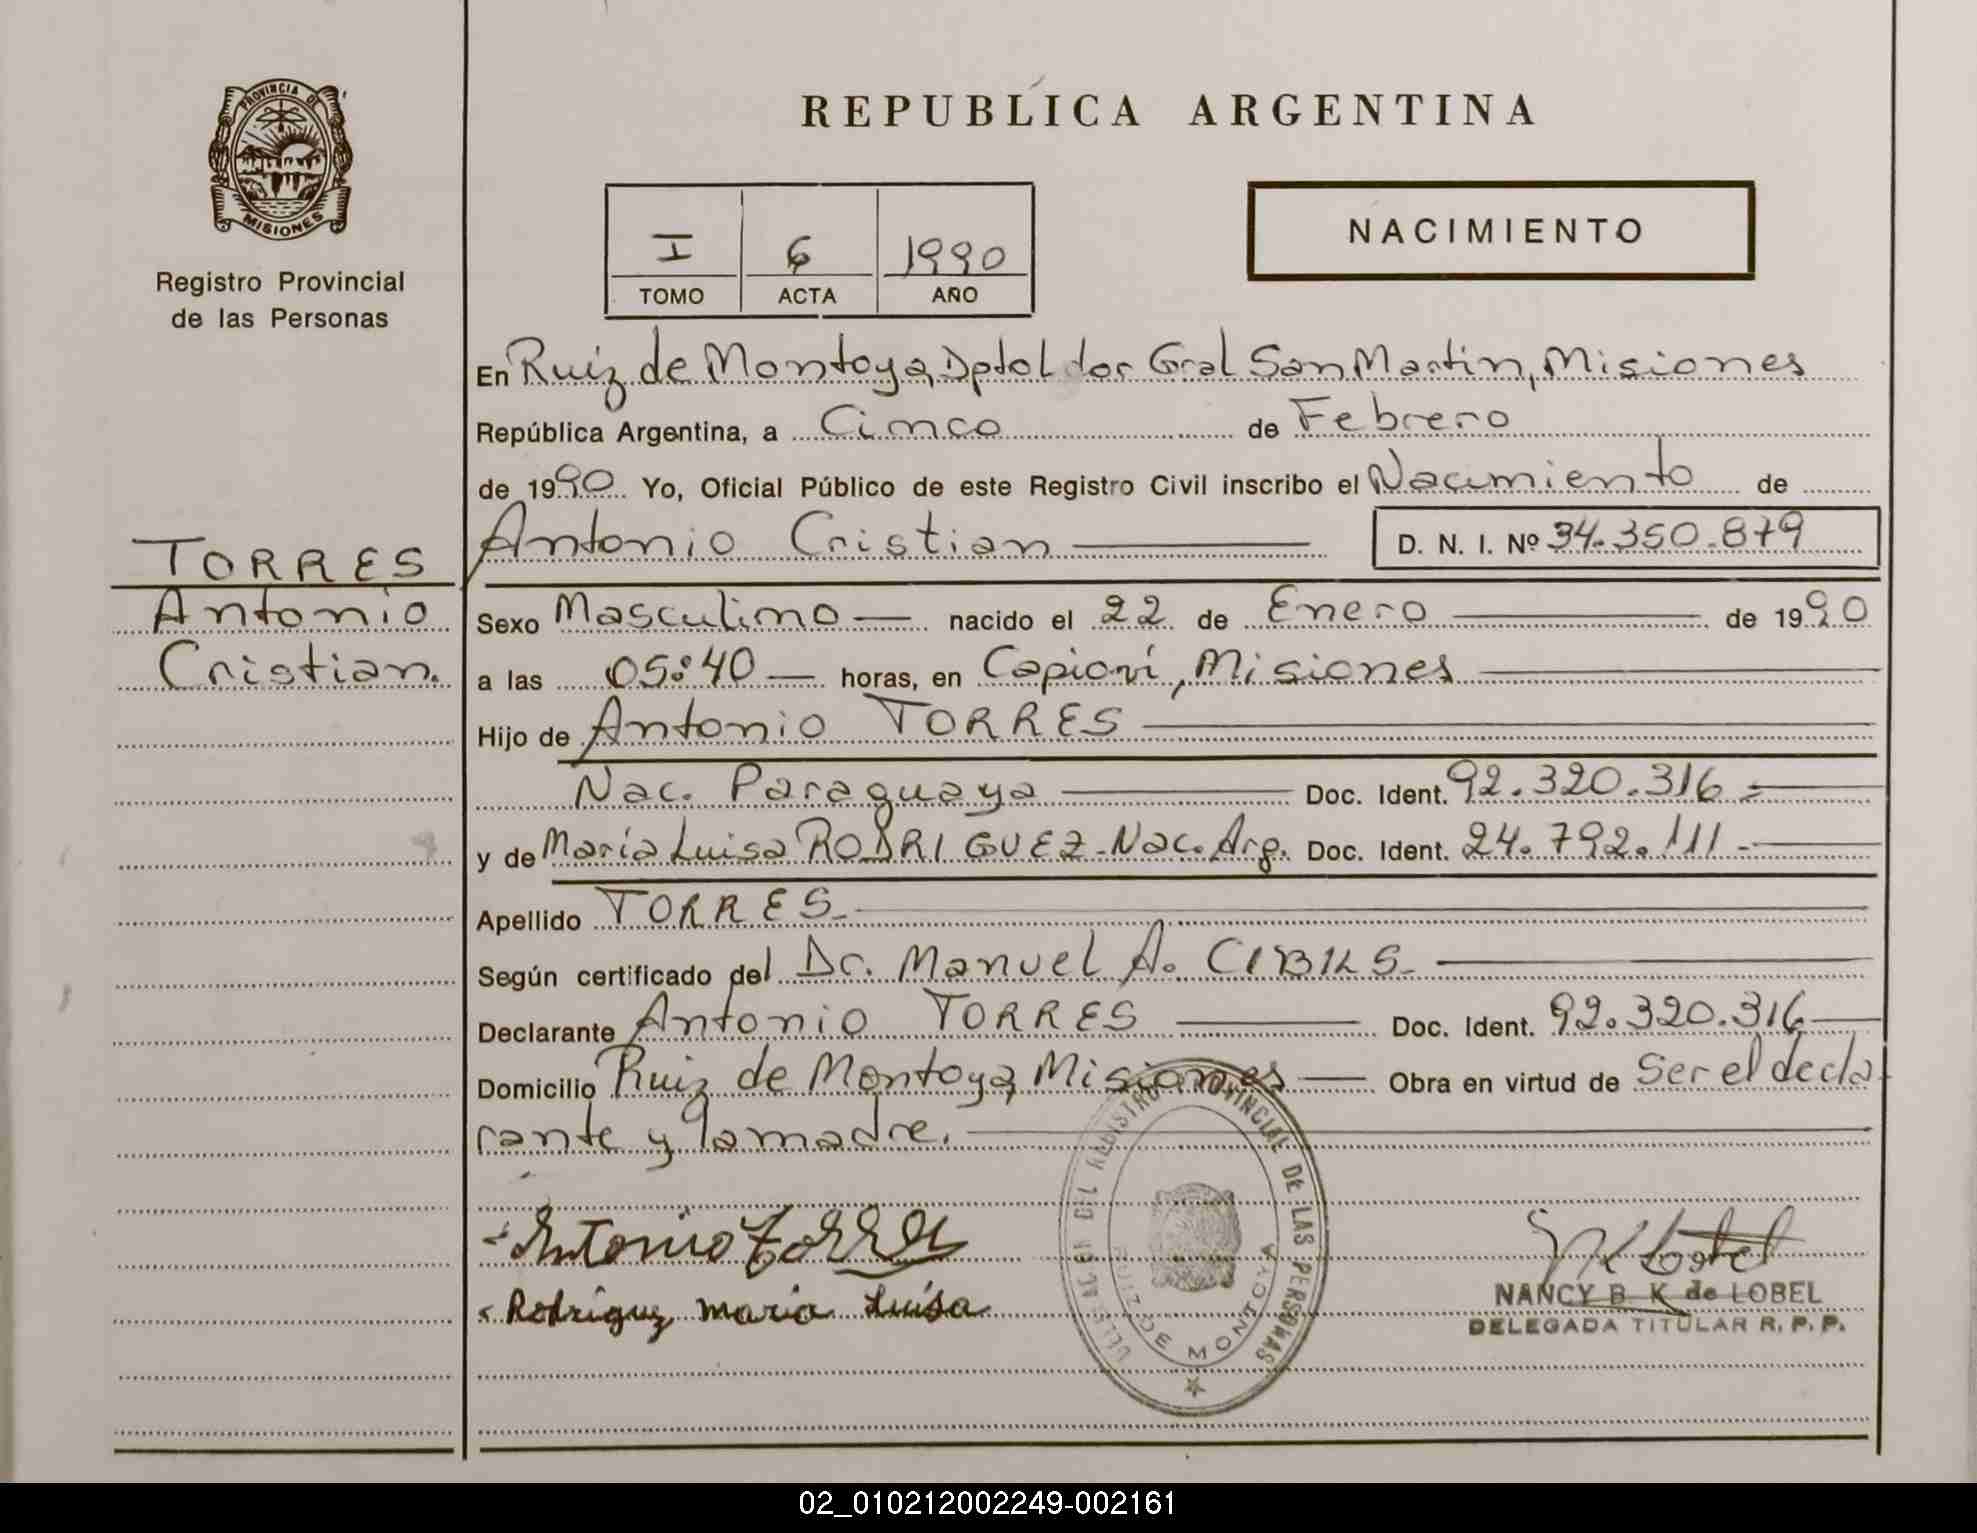 PROVINCIA DE
MISIONES
Registro Provincial
de las Personas
TORRES
Antonio
Cristian.
REPUBLICA ARGENTINA
I 6 1990
TOMO ACTA AÑO
NACIMIENTO
En Ruiz de Montoya, Dpto Ldor Gral San Martin, Misiones
República Argentina, a Cinco de Febrero
de 1990 Yo, Oficial Público de este Registro Civil inscribo el Nacimiento de
Antonio Cristian D. N. I. Nº 34.350.879
Sexo Masculino nacido el 22 de Enero de 1990
a las 05:40 horas, en Capioví, Misiones
Hijo de Antonio TORRES
Nac. Paraguaya Doc. Ident. 92.320.316
y de María Luisa RODRIGUEZ - Nac. Arg. Doc. Ident. 24.792.111
Apellido TORRES
Según certificado del Dr. Manuel A. CIBILS
Declarante Antonio TORRES Doc. Ident. 92.320.316
Domicilio Ruiz de Montoya, Misiones Obra en virtud de Ser el decla
rante y la madre.
Antonio Torres
Rodriguez maria Luisa
REGISTRO PROVINCIAL DE LAS PERSONAS
RUIZ DE MONTOYA
NANCY B. K. de LOBEL
DELEGADA TITULAR R. P. P.
02_010212002249-002161